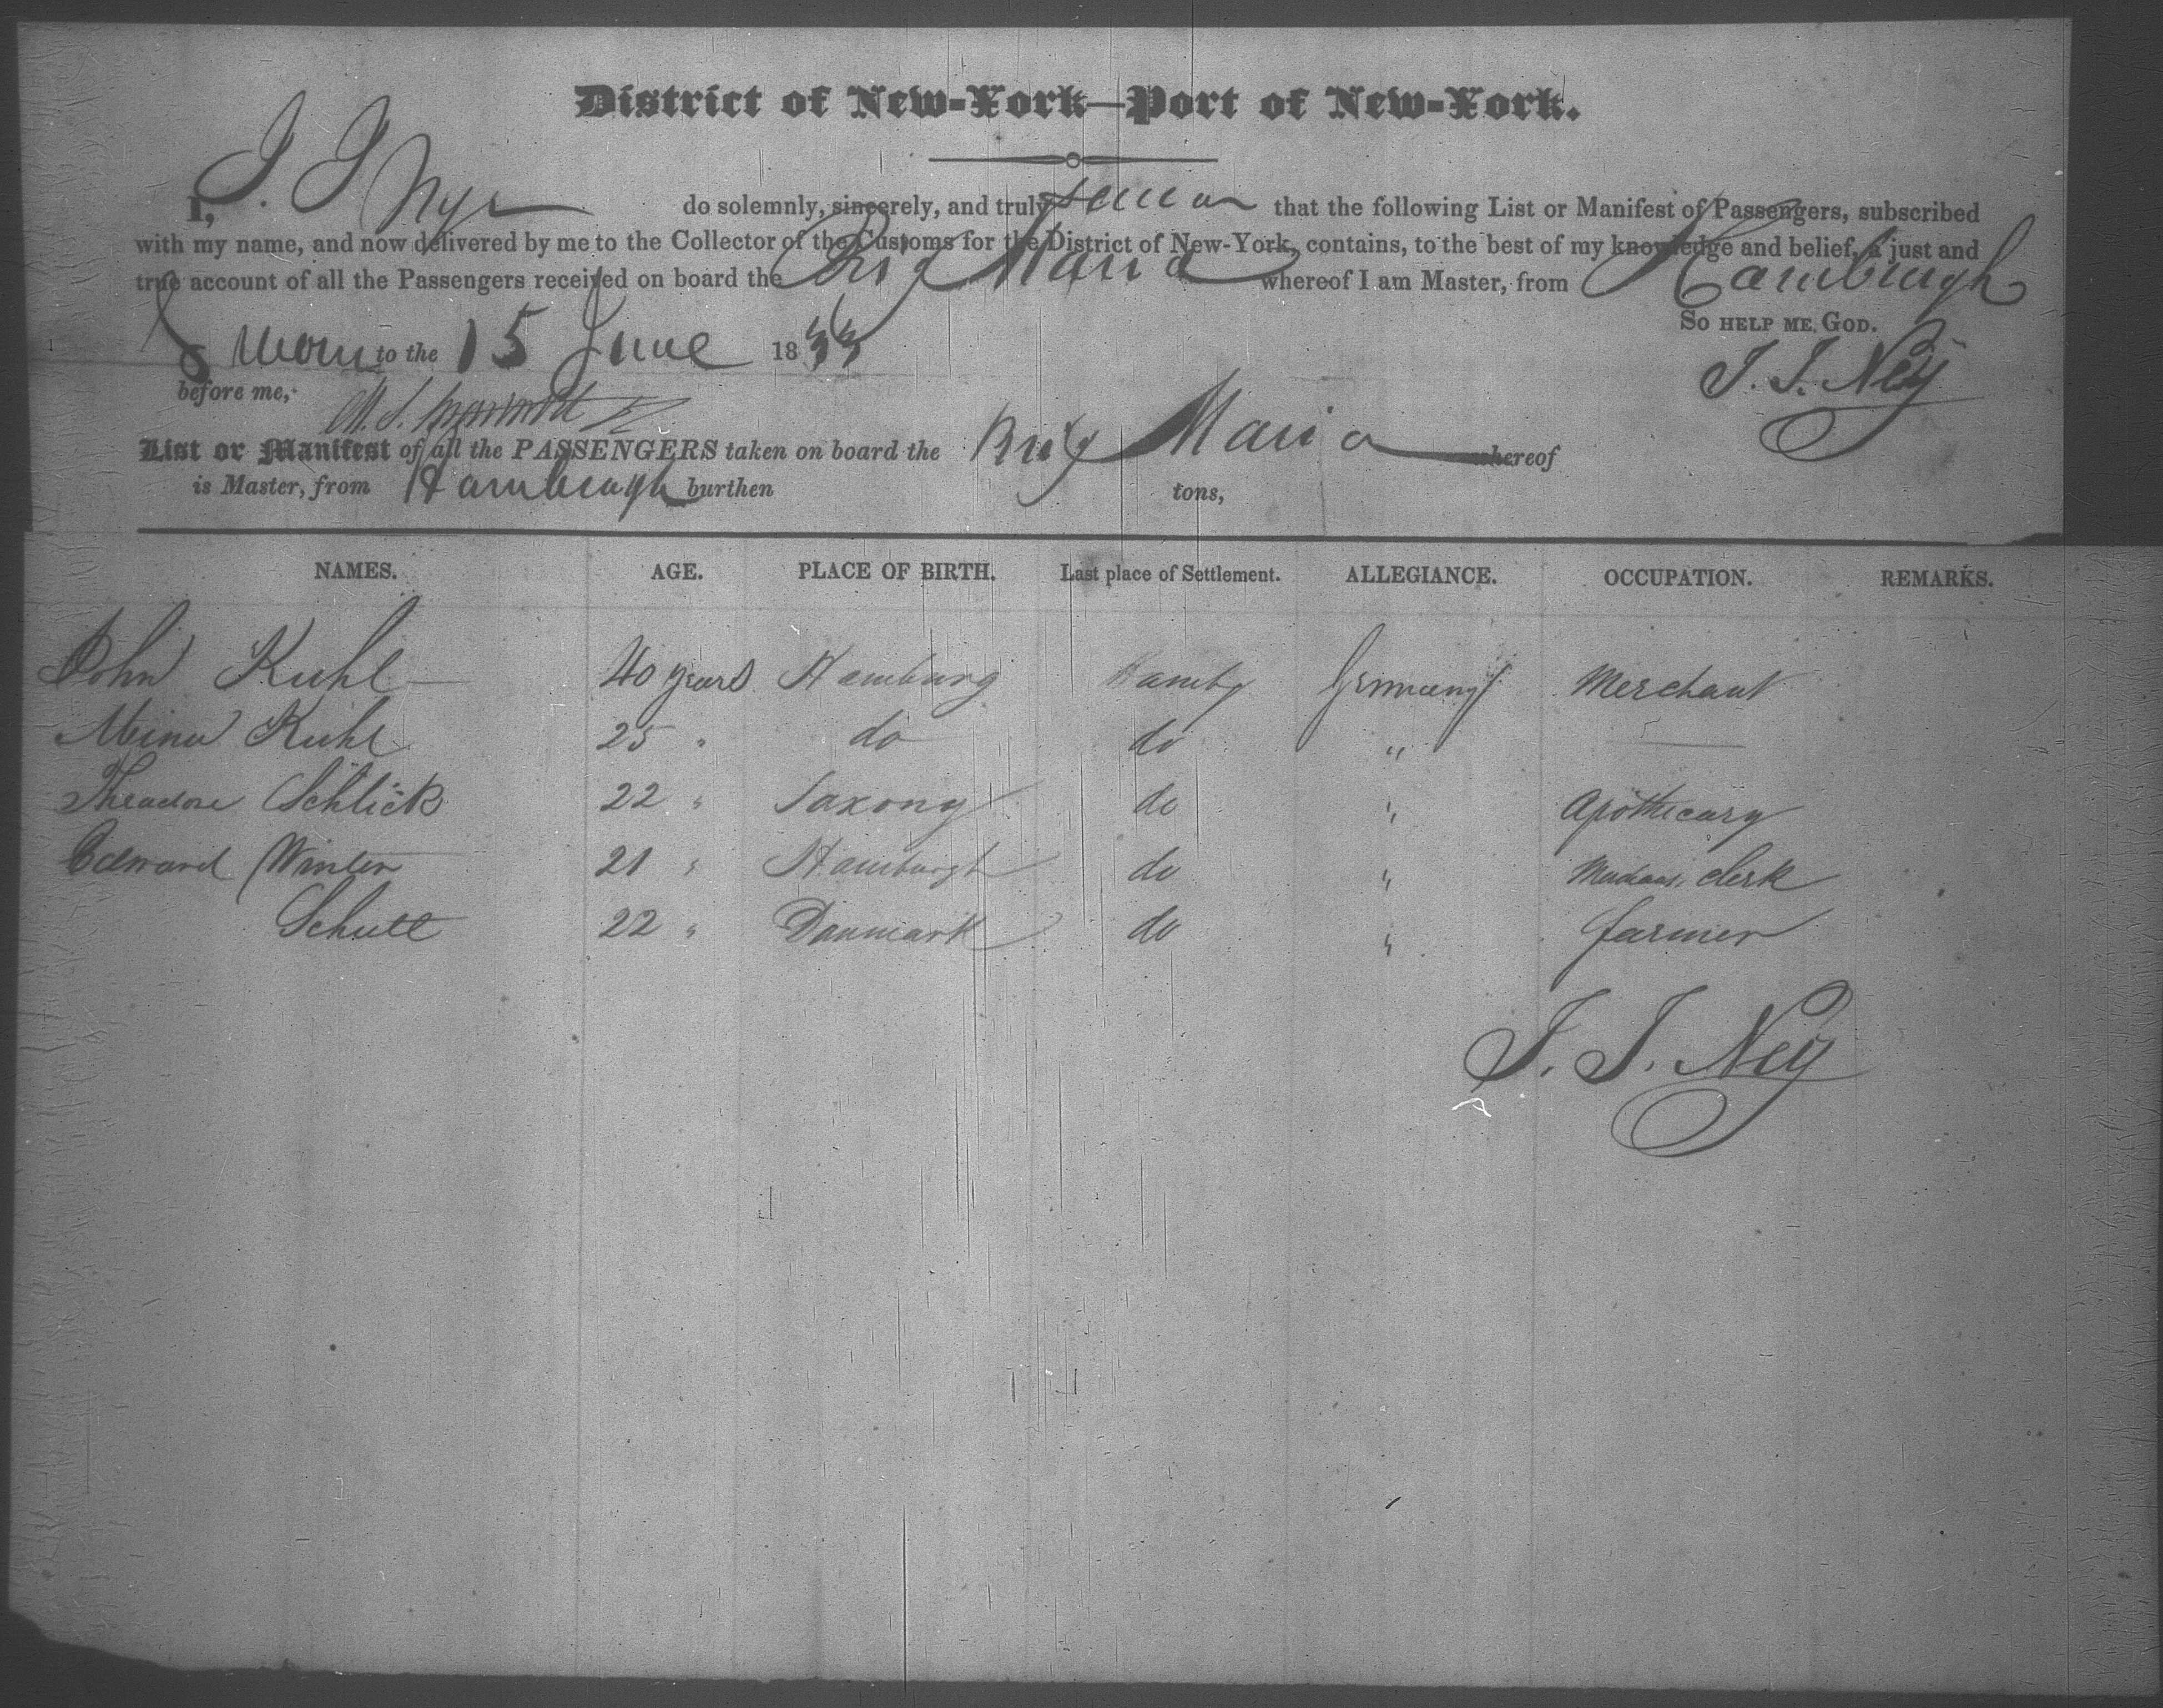 District of New-York—Port of New-York.
I, J. J. Nye do solemnly, sincerely, and truly swear that the following List or Manifest of Passengers, subscribed
with my name, and now delivered by me to the Collector of the Customs for the District of New-York, contains, to the best of my knowledge and belief, a just and
true account of all the Passengers received on board the Brig Maria whereof I am Master, from Hamburgh
So help me God.
Sworn to the 15 June 1833
J. J. Ney
before me,
List or Manifest of all the PASSENGERS taken on board the Brig Maria whereof
is Master, from Hamburgh burthen tons,
NAMES. AGE. PLACE OF BIRTH. Last place of Settlement. ALLEGIANCE. OCCUPATION. REMARKS.
John Kuhl 40 years Hamburg Hambg Germany Merchant
Mina Kuhl 25 " do do "
Theodore Schlick 22 " Saxony do " Apothecary
Edward Winter 21 " Hamburgh do " clerk
Schutt 22 " Danmark do " farmer
J. J. Ney